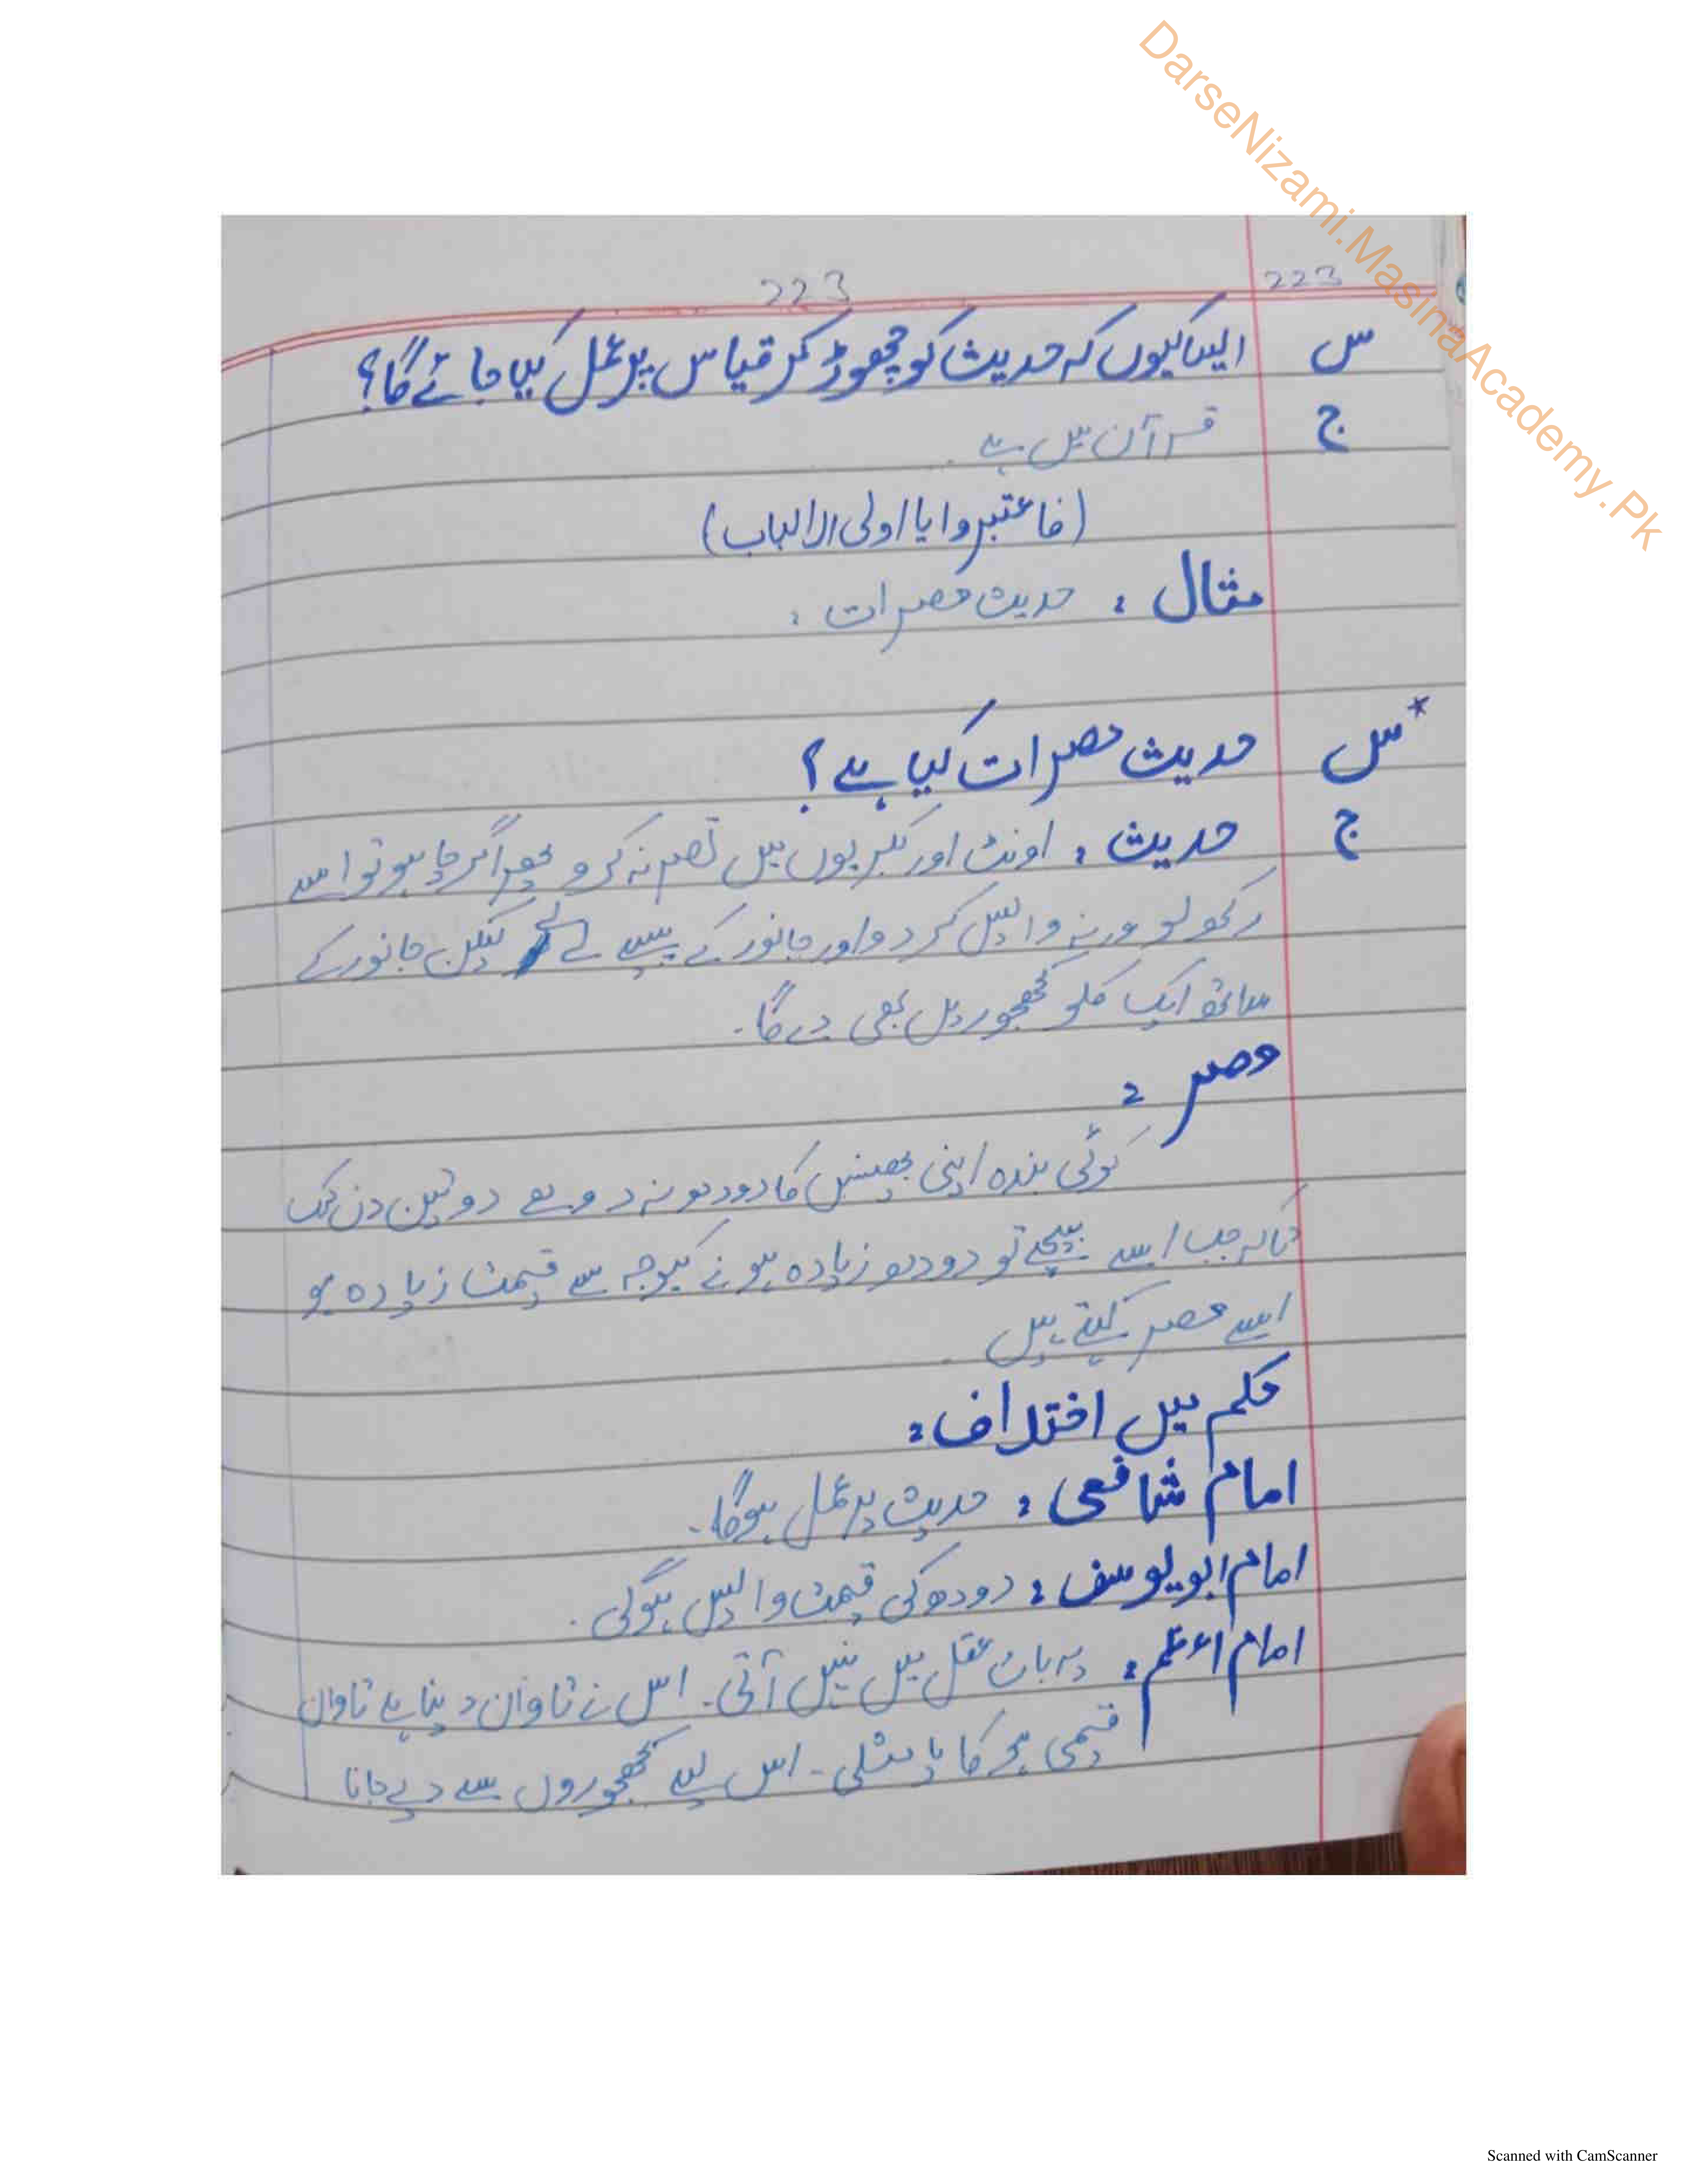 DarseNizami.MasinaAcademy.Pk
223 223
س ایسا کیوں کہ حدیث کو چھوڑ کر قیاس پر عمل کیا جائے گا؟
ج قرآن میں ہے
(فاعتبروا یا اولی الالباب)
مثال : حدیث مصرات :
*س حدیث مصرات کیا ہے؟
ج حدیث : اونٹ اور بکریوں میں تصر نہ کرو پھر اگر چاہو تو اسے
رکھ لو ورنہ واپس کر دو اور جانور کے پیسے لے لے لیکن جانور کے
ساتھ ایک کلو کھجوریں بھی دے گا۔
مصر :
کوئی بندہ اپنی بھینس کا دودھ نہ دوہے دو تین دن تک
تاکہ جب اسے بیچے تو دودھ زیادہ ہونے کیوجہ سے قیمت زیادہ ہو
اسے مصر کہتے ہیں
حکم میں اختلاف :
امام شافعی : حدیث پر عمل ہوگا۔
امام ابو یوسف : دودھ کی قیمت واپس ہوگی۔
امام اعظم : یہ بات عقل میں نہیں آتی۔ اس نے تاوان دینا ہے تاوان
قیمی ہے گا یا مثلی۔ اس لیے کھجوروں سے دیے جانا
Scanned with CamScanner